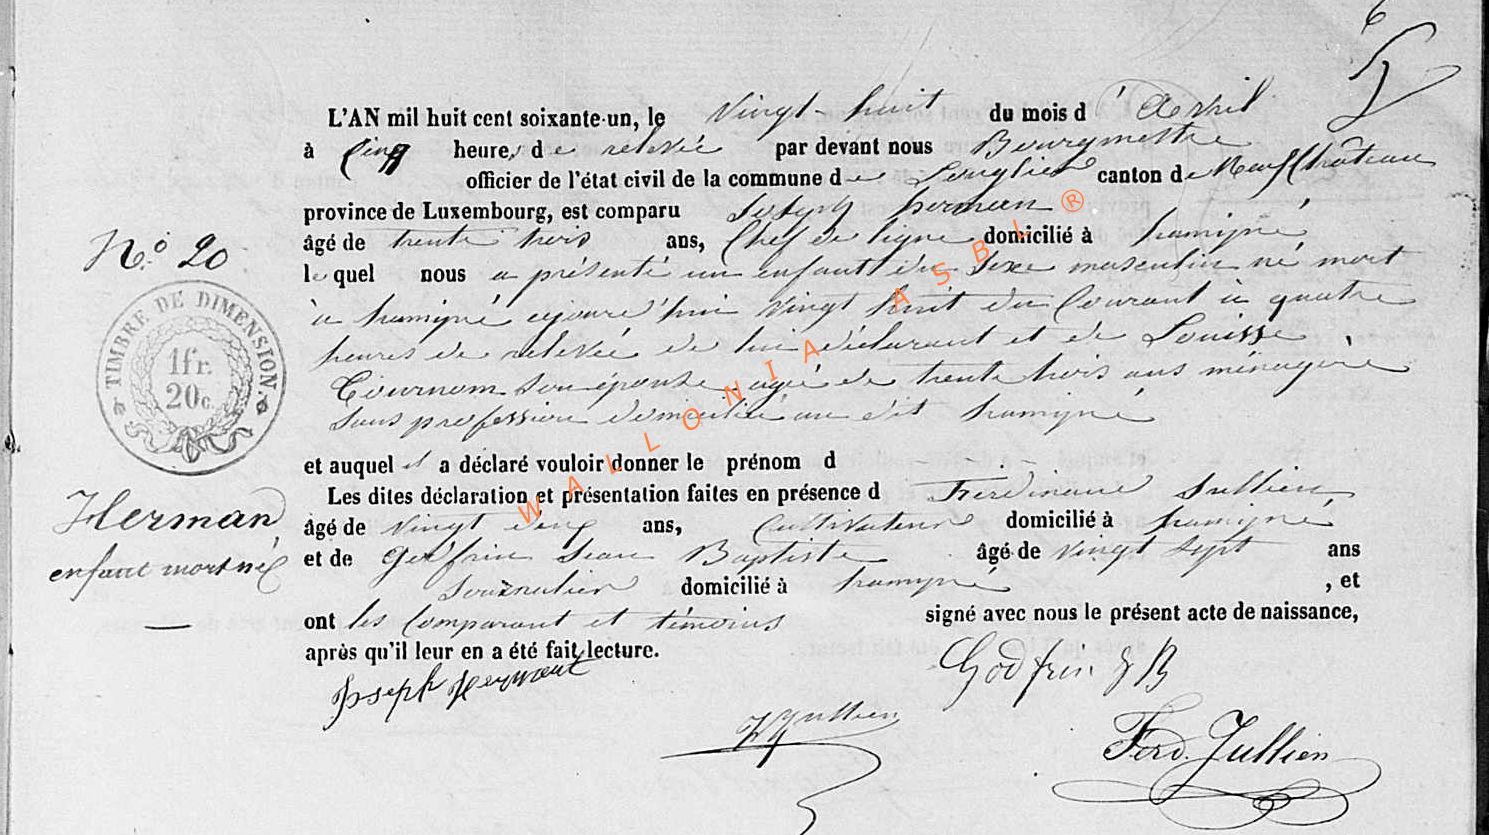 6
L'AN mil huit cent soixante-un, le Vingt-huit du mois d'Avril
à Cinq heures de relevée par devant nous Bourgmestre
officier de l'état civil de la commune de Longlier canton de Neufchâteau
province de Luxembourg, est comparu Joseph herman
âgé de trente trois ans, Chef de ligne domicilié à hamipré
N.° 20
le quel nous a présenté un enfant du sexe masculin né mort
à hamipré aujourd'hui vingt huit du Courant à quatre
heures de relevée de lui déclarant et de Louisse
Tournom son épouse agée de trente trois ans ménagère
sans profession domiciliée au dit hamipré
TIMBRE DE DIMENSION.
1fr.
20c.
et auquel il a déclaré vouloir donner le prénom d - . -
Les dites déclaration et présentation faites en présence d Ferdinand Jullien
âgé de vingt cinq ans, Cultivateur domicilié à hamipré
et de Godfrin Jean Baptiste âgé de vingt sept ans
Journalier domicilié à hamipré , et
ont les Comparant et témoins signé avec nous le présent acte de naissance,
après qu'il leur en a été fait lecture.
Herman
enfant mort né
Joseph Hermant
Godfrin J B
Jullien
Ferd. Jullien
WALLONIA ASBL ®